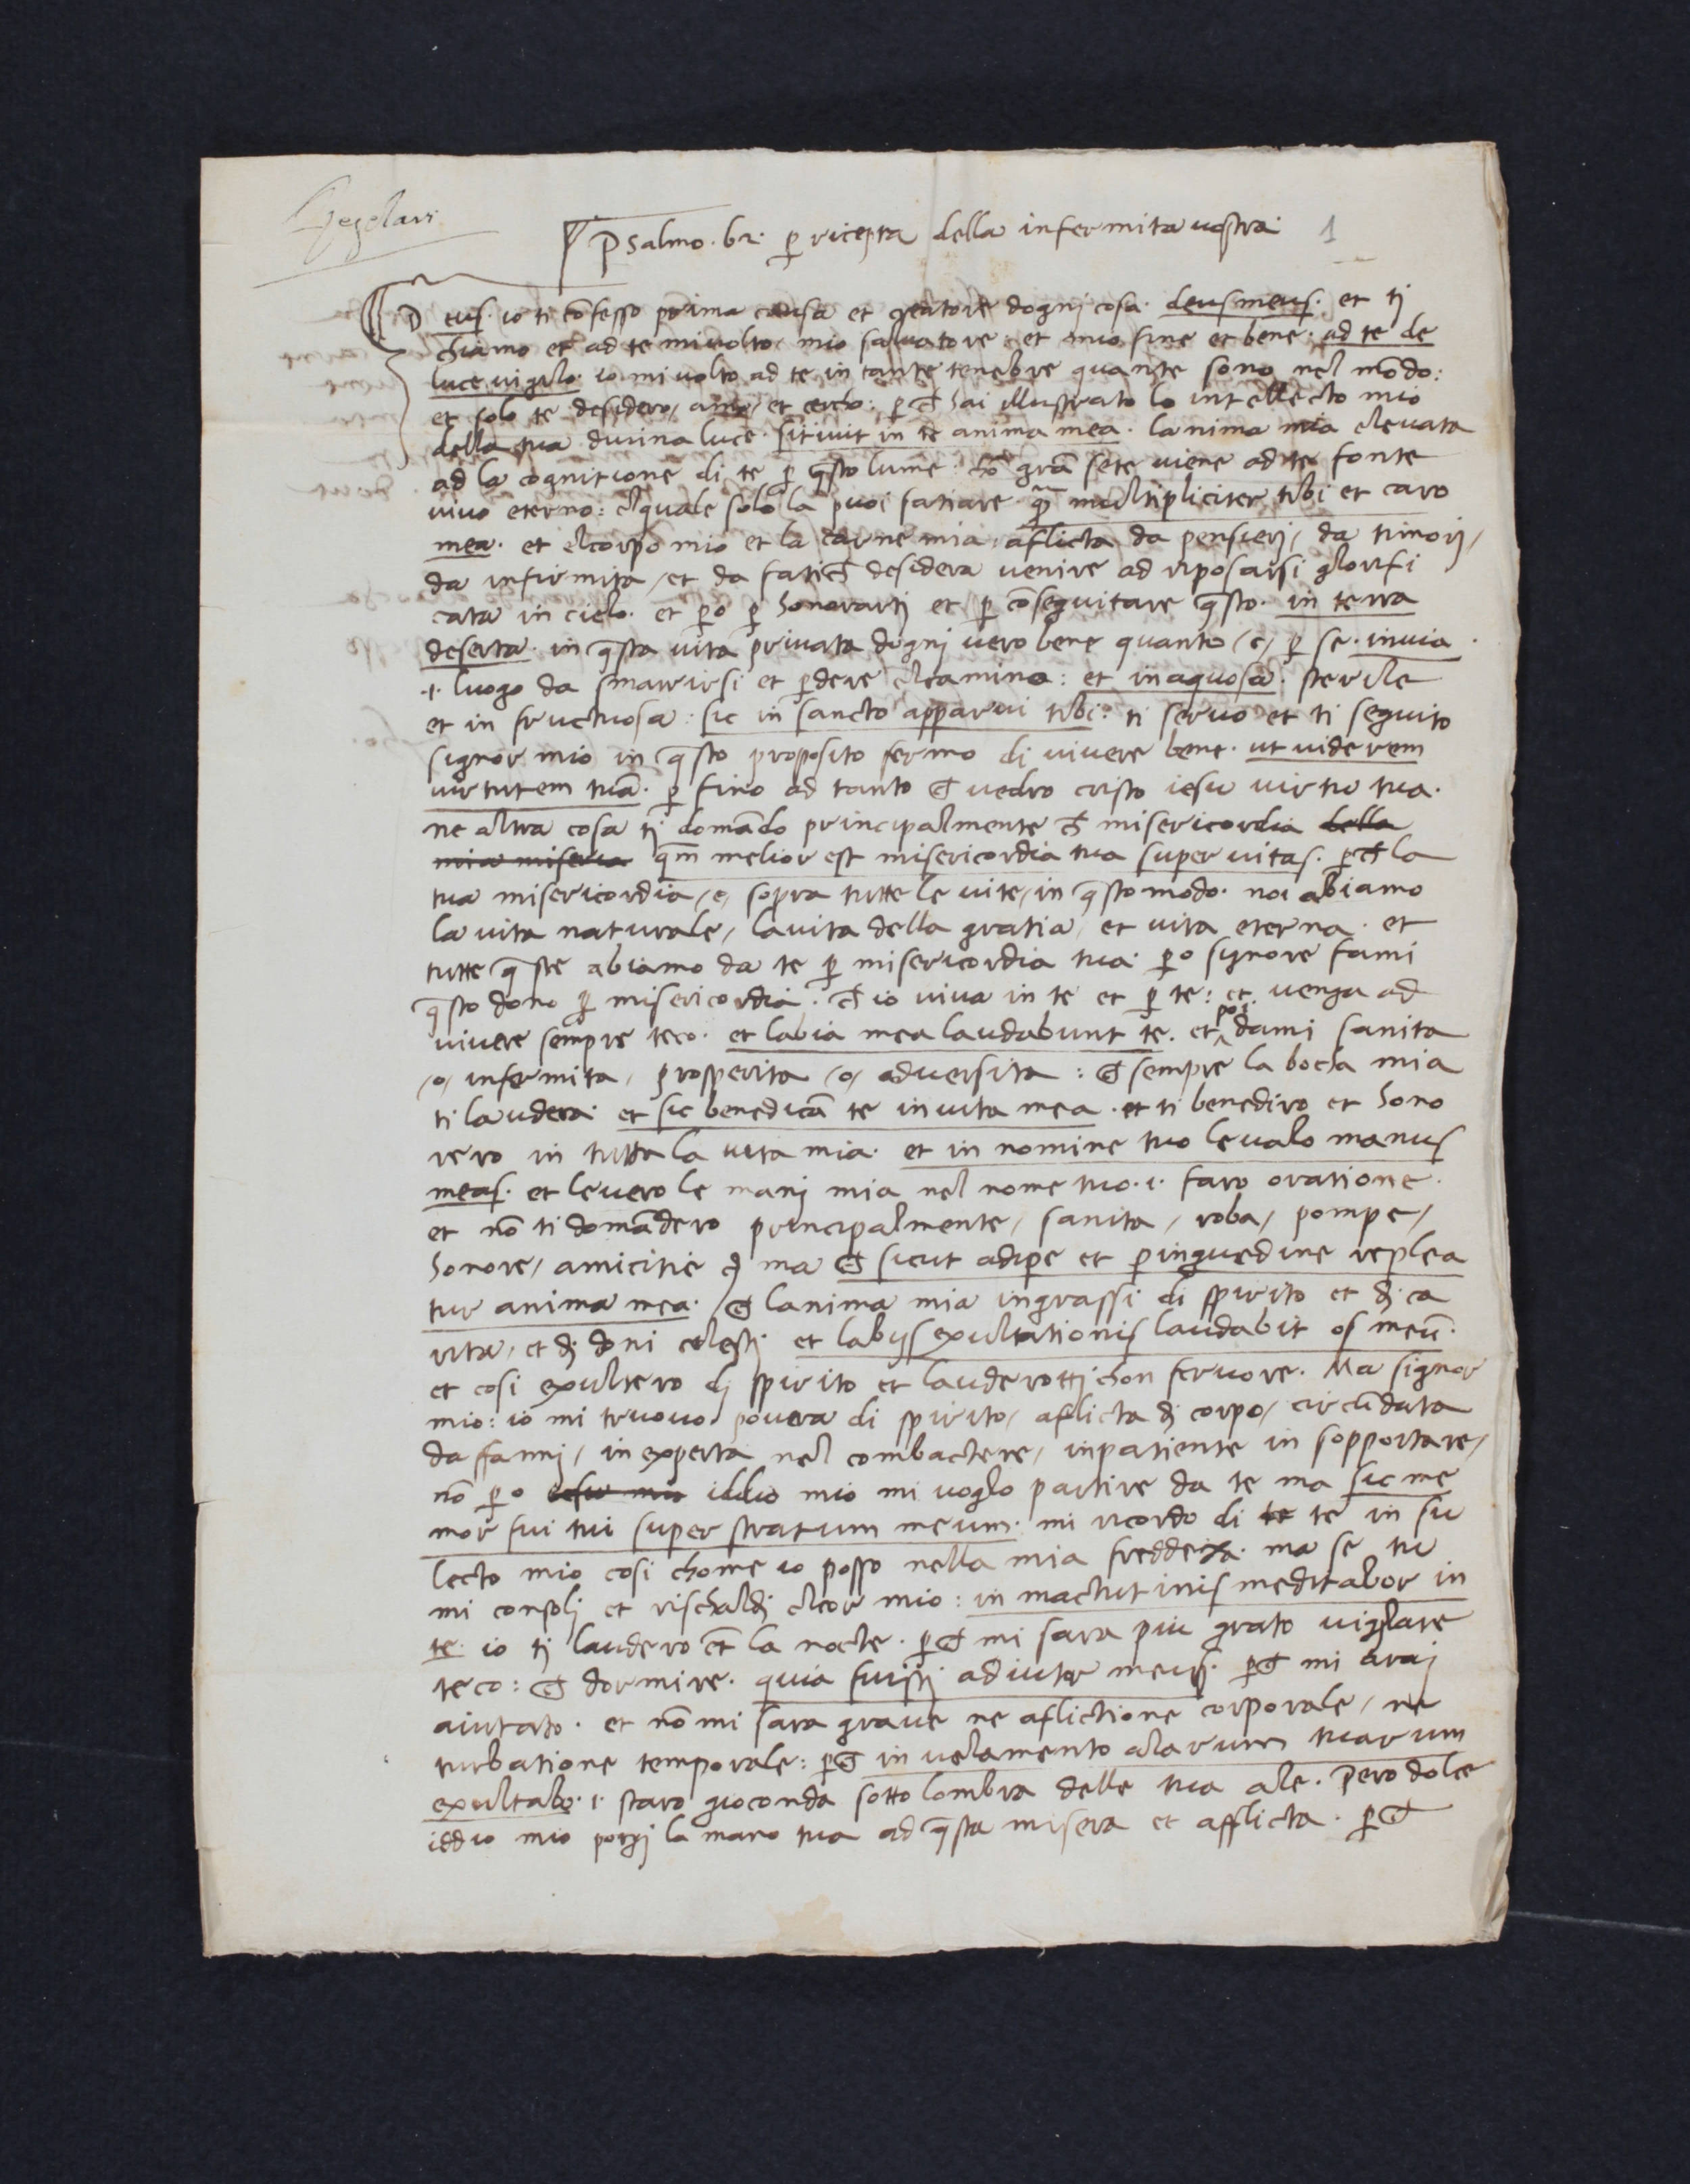 Psalmo. 62. p ricepta della infermita vostra. 1
Deus. io ti cōfesso prima causa et creatore dogni cosa. deus meus. et ti
chiamo et ad te mi volto, mio salvatore: et mio fine et bene: ad te de
luce vigilo. io mi volto ad te in tante tenebre quante sono nel mōdo:
et solo te desidero, amo, et cercho: p ch hai illustrato lo intellecto mio
della tua divina luce. sitivit in te anima mea. lanima mia elevata
ad la cognitione di te p qsto lume: chō grā sete viene ad te fonte
vivo eterno: elquale solo la puoi satiare. qm multipliciter tibi et caro
mea. et elcorpo mio et la carne mia aflicta da pensierj, da timorj,
da infirmita, et da fatich desidera venire ad riposarsi glorifi
cata in cielo. et po p honorartj et p cōseguitare qsto. in terra
deserta. in qsta vita privata dognj vero bene quanto, e, p se. invia.
.i. luogo da smarrirsi et pdere elcamino: et inaquosa. sterile
et in fructuosa: sic in sancto apparui tibi: ti servo et ti seguito
signor mio in qsto proposito fermo di vivere bene. ut viderem
virtutem tuā. p fino ad tanto ch vedro cristo iesu virtu tua.
ne altra cosa tj domādo principalmente ch misericordia della
mia miseria qm melior est misericordia tua super vitas. pch la
tua misericordia, e, sopra tutte le vite, in qsto modo. noi abiamo
la vita naturale, la vita della gratia, et vita eterna. et
tutte qste abiamo da te p misericordia tua. po signore fami
qsto dono p misericordia. ch io viva in te et p te: et venga ad
vivere sempre teco. et labia mea laudabunt te. et poi dami sanita
,o, infermita, prosperita ,o, adversita: ch sempre la bocha mia
ti laudera. et sic benedicā te in vita mea. et ti benediro et hono
rero in tutta la vita mia. et in nomine tuo levabo manus
meas. et levero le manj mia nel nome tuo .i. faro oratione.
et nō ti domādero principalmente, sanita, roba, pompe,
honore, amicitie ma ch sicut adipe et pinguedine replea
tur anima mea. ch lanima mia ingrassi di spirito et dj ca
rita, et dj doni celestj. et labijs exultationis laudabit os meū.
et cosi exultero dj spirito et lauderottj chon fervore. Ma signor
mio: io mi truovo povera di spirito, aflicta dj corpo, circūdata
da ffannj, in experta nel combactere, inpatiente in sopportare,
nō po iddio mio mi voglo partire da te ma sic me
mor fui tui super stratum meum. mi ricordo di te te in su
lecto mio cosi chome io posso nella mia freddeza. ma se tu
mi consolj et rischaldj elcor mio: in mactutinis meditabor in
te. io tj laudero et la nocte. pch mi sara piu grato vigilare
teco: ch dormire. quia fuistj adiutor meus. pch mi araj
aiutato. et nō mi sara grave ne aflictione corporale, ne
turbatione temporale: pch in velamento alarum tuarum
exultabo .i. staro gioconda sotto lombra delle tua ale. Pero dolce
iddio mio porgj la mano tua ad qsta misera et afflicta. pch